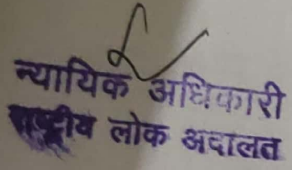 न्यायिक अधिकारी
राष्ट्रीय लोक अदालत